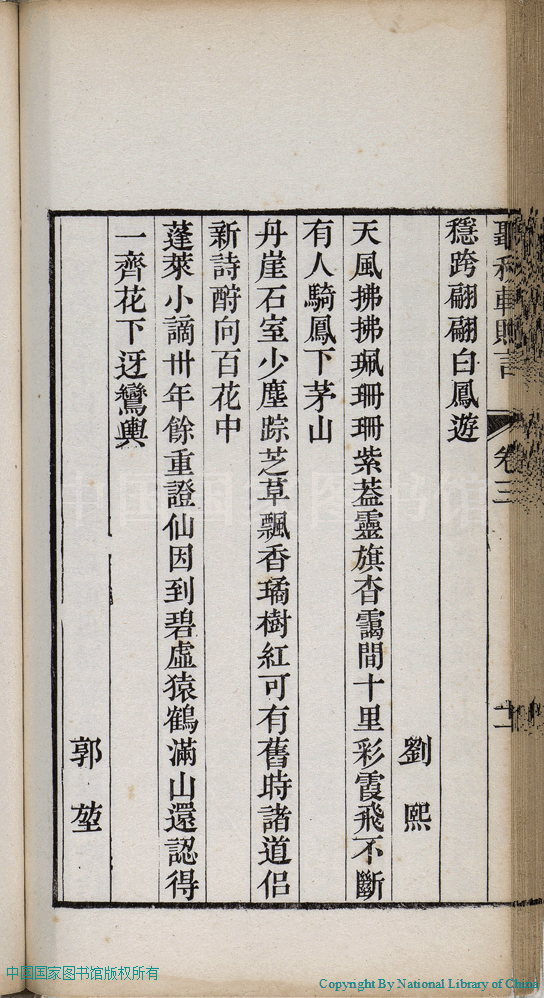 聽秋軒贈言 卷三 十一
穩跨翩翩白鳳遊
劉熙
天風拂拂珮珊珊紫葢靈旗杳靄間十里彩霞飛不斷
有人騎鳳下茅山
丹崖石室少塵踪芝草飄香璚樹紅可有舊時諸道侣
新詩酧向百花中
蓬萊小謫卅年餘重證仙因到碧虛猿鶴滿山還認得
一齊花下迓鸞輿
郭堃
中国国家图书馆
中国国家图书馆版权所有
Copyright By National Library of China